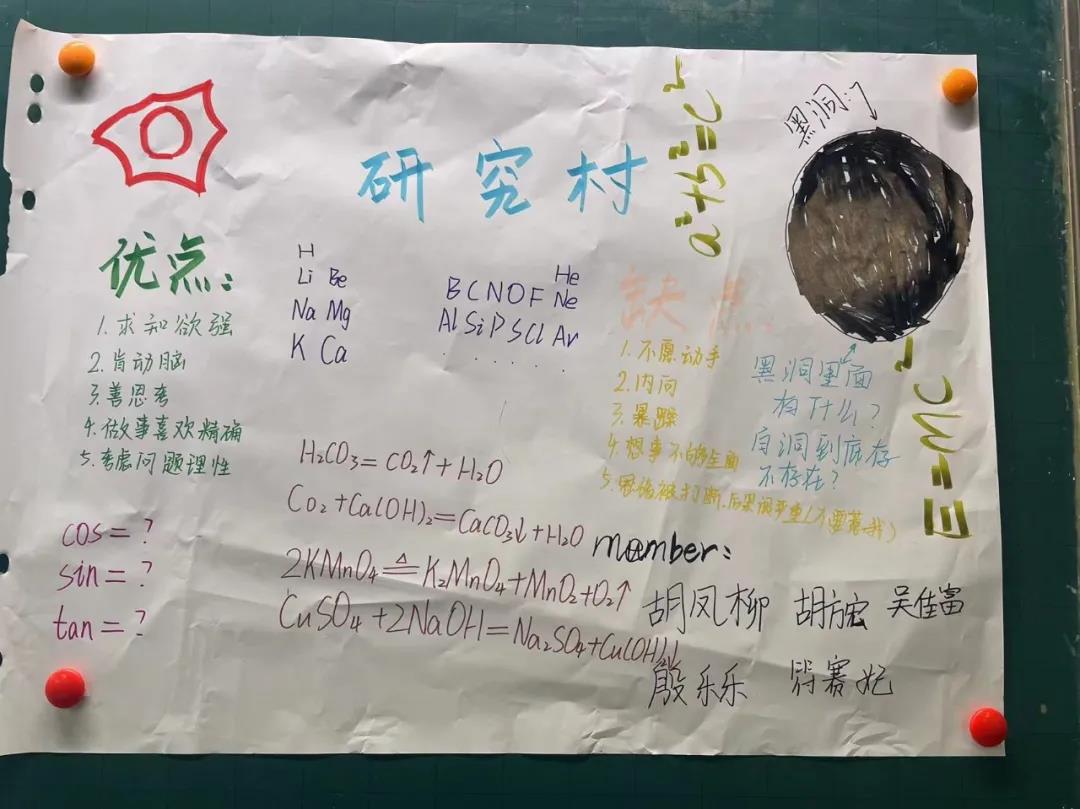 研究村
a²+b²=c²
黑洞:
优点:
1.求知欲强
2.肯动脑
3.善思考
4.做事喜欢精确
5.考虑问题理性
H
Li Be
Na Mg
K Ca
He
B C N O F Ne
Al Si P S Cl Ar
. . . . . .
缺点:
1.不愿动手
2.内向
3.暴躁
4.想事不够全面
5.思绪被打断,后果很严重(不要惹我)
黑洞里面
有什么?
白洞到底存
不存在?
E=MC²
H₂CO₃=CO₂↑+H₂O
Co₂+Ca(OH)₂=CaCO₃↓+H₂O
2KMnO₄≜K₂MnO₄+MnO₂+O₂↑
CuSO₄+2NaOH=Na₂SO₄+Cu(OH)₂↓
cos=?
sin=?
tan=?
member:
胡凤柳 胡方宏 吴佳富
殷乐乐 赛妃